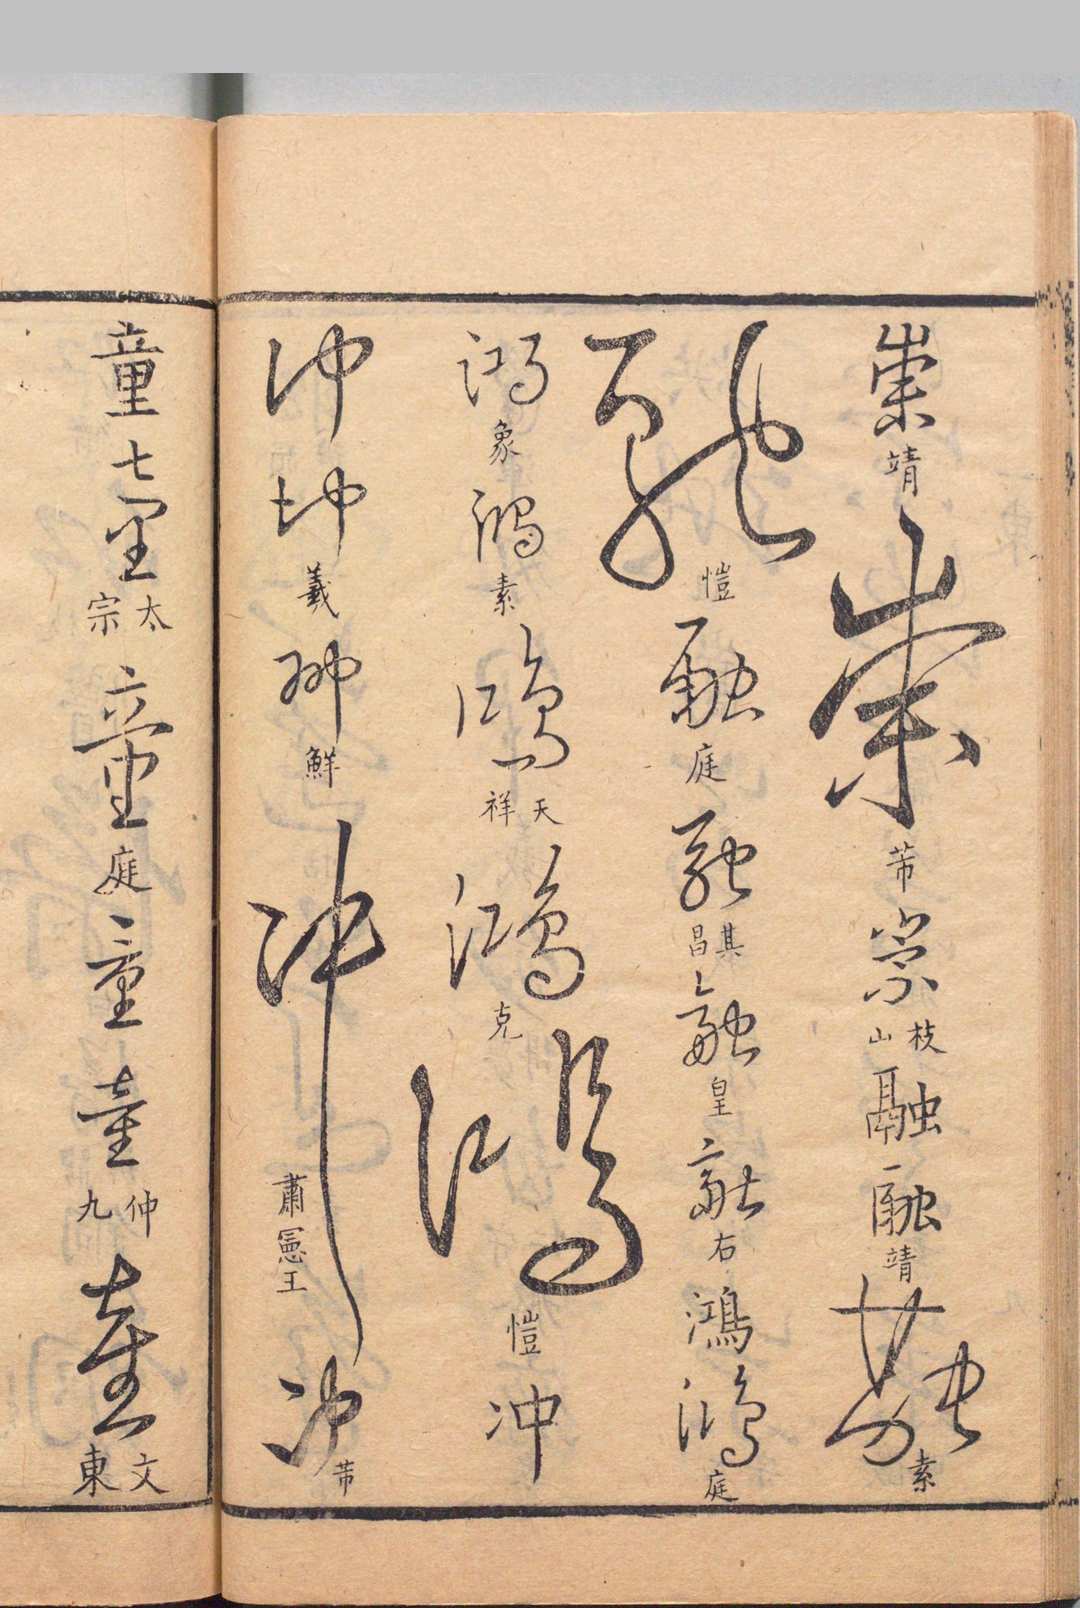 崇靖崇芾崇枝山融融靖融素
融愷融庭融其昌融皇融右鴻鴻庭
鴻象鴻素鴻天祥鴻克鴻愷冲
冲冲羲冲鮮冲肅憲王冲芾
童童太宗童庭童童仲九童文東